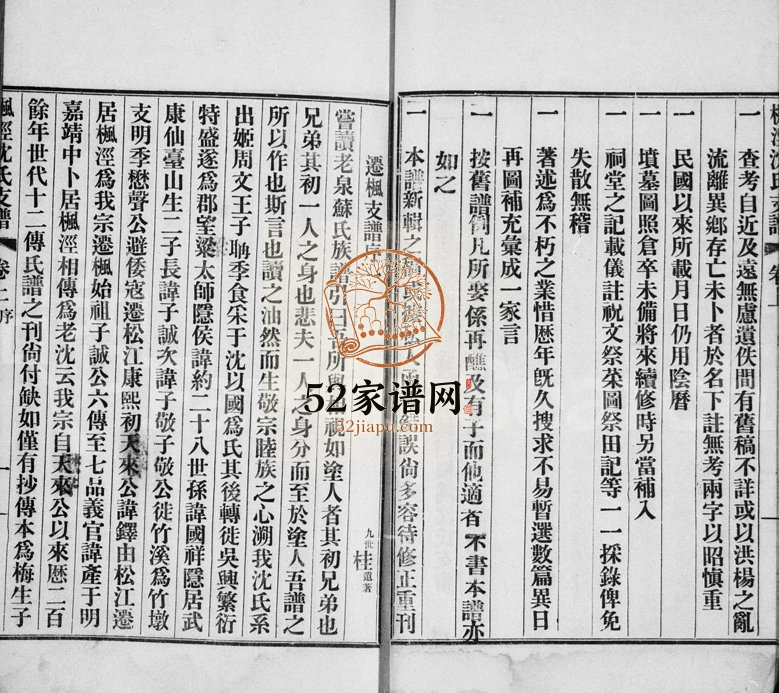 楓涇沈氏支譜 卷一
一 查考自近及遠無慮遺佚間有舊稿不詳或以洪楊之亂
流離異鄉存亡未卜者於名下註無考兩字以昭慎重
一 民國以來所載月日仍用陰曆
一 墳墓圖照倉卒未備將來續修時另當補入
一 祠堂之記載儀註祝文祭菜圖祭田記等一一採錄俾免
失散無稽
一 著述爲不朽之業惜歷年既久搜求不易暫選數篇異日
再圖補充彙成一家言
一 按舊譜簡凡所娶係再醮及有子而他適者不書本譜亦
如之
一 本譜新輯之 誤尙多容待修正重刊
遷楓支譜序
九世 桂 遺著
嘗讀老泉蘇氏族譜引曰吾所與相視如塗人者其初兄弟也
兄弟其初一人之身也悲夫一人之身分而至於塗人吾譜之
所以作也斯言也讀之油然而生敬宗睦族之心溯我沈氏系
出姬周文王子聃季食采于沈以國爲氏其後轉徙吳興繁衍
特盛遂爲郡望梁太師隱侯諱約二十八世孫諱國祥隱居武
康仙臺山生二子長諱子誠次諱子敬子敬公徙竹溪爲竹墩
支明季懋聲公避倭寇遷松江康熙初天來公諱鐸由松江遷
居楓涇爲我宗遷楓始祖子誠公六傳至七品義官諱產于明
嘉靖中卜居楓涇相傳爲老沈云我宗自天來公以來歷二百
餘年世代十二傳氏譜之刊尙付缺如僅有抄傳本爲梅生子
楓涇沈氏支譜 卷一 序
52家谱网
52jiapu.com